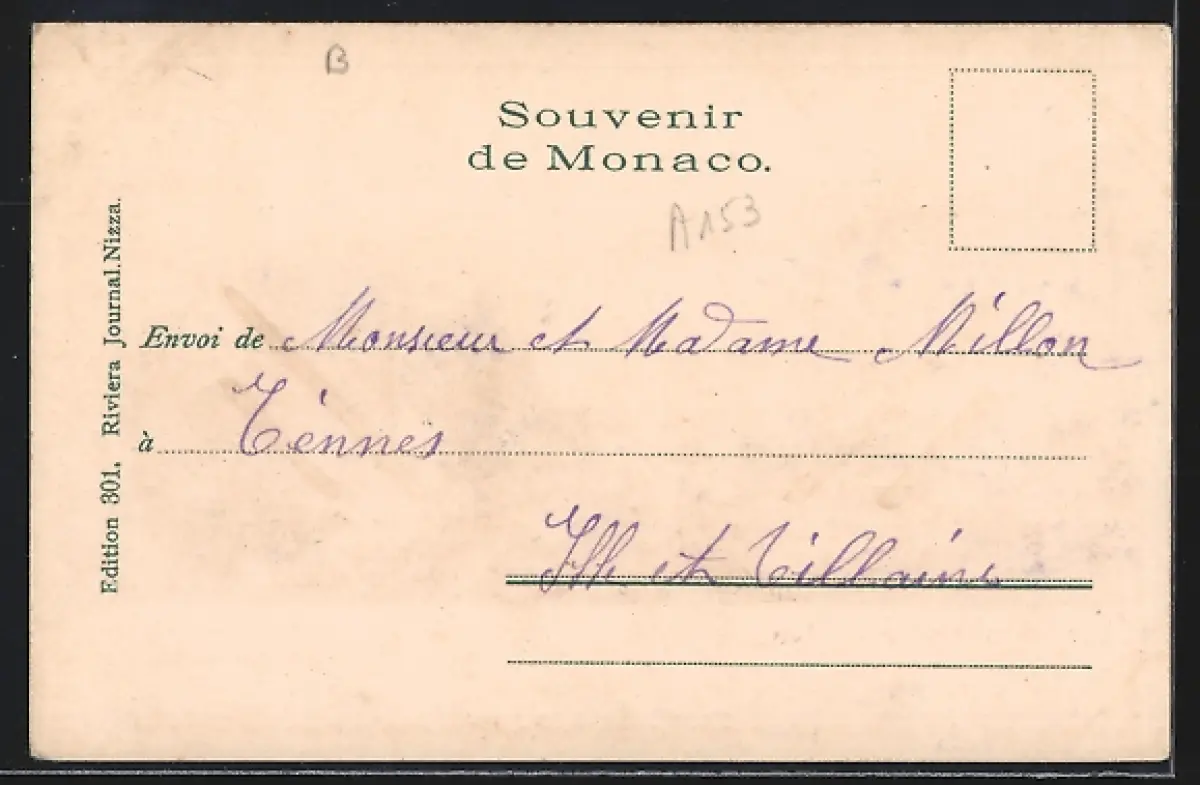 B
Souvenir
de Monaco.
A153
Edition 301, Riviera Journal. Nizza.
Envoi de Monsieur et Madame Millon
à Vennes
Ille et Villaine